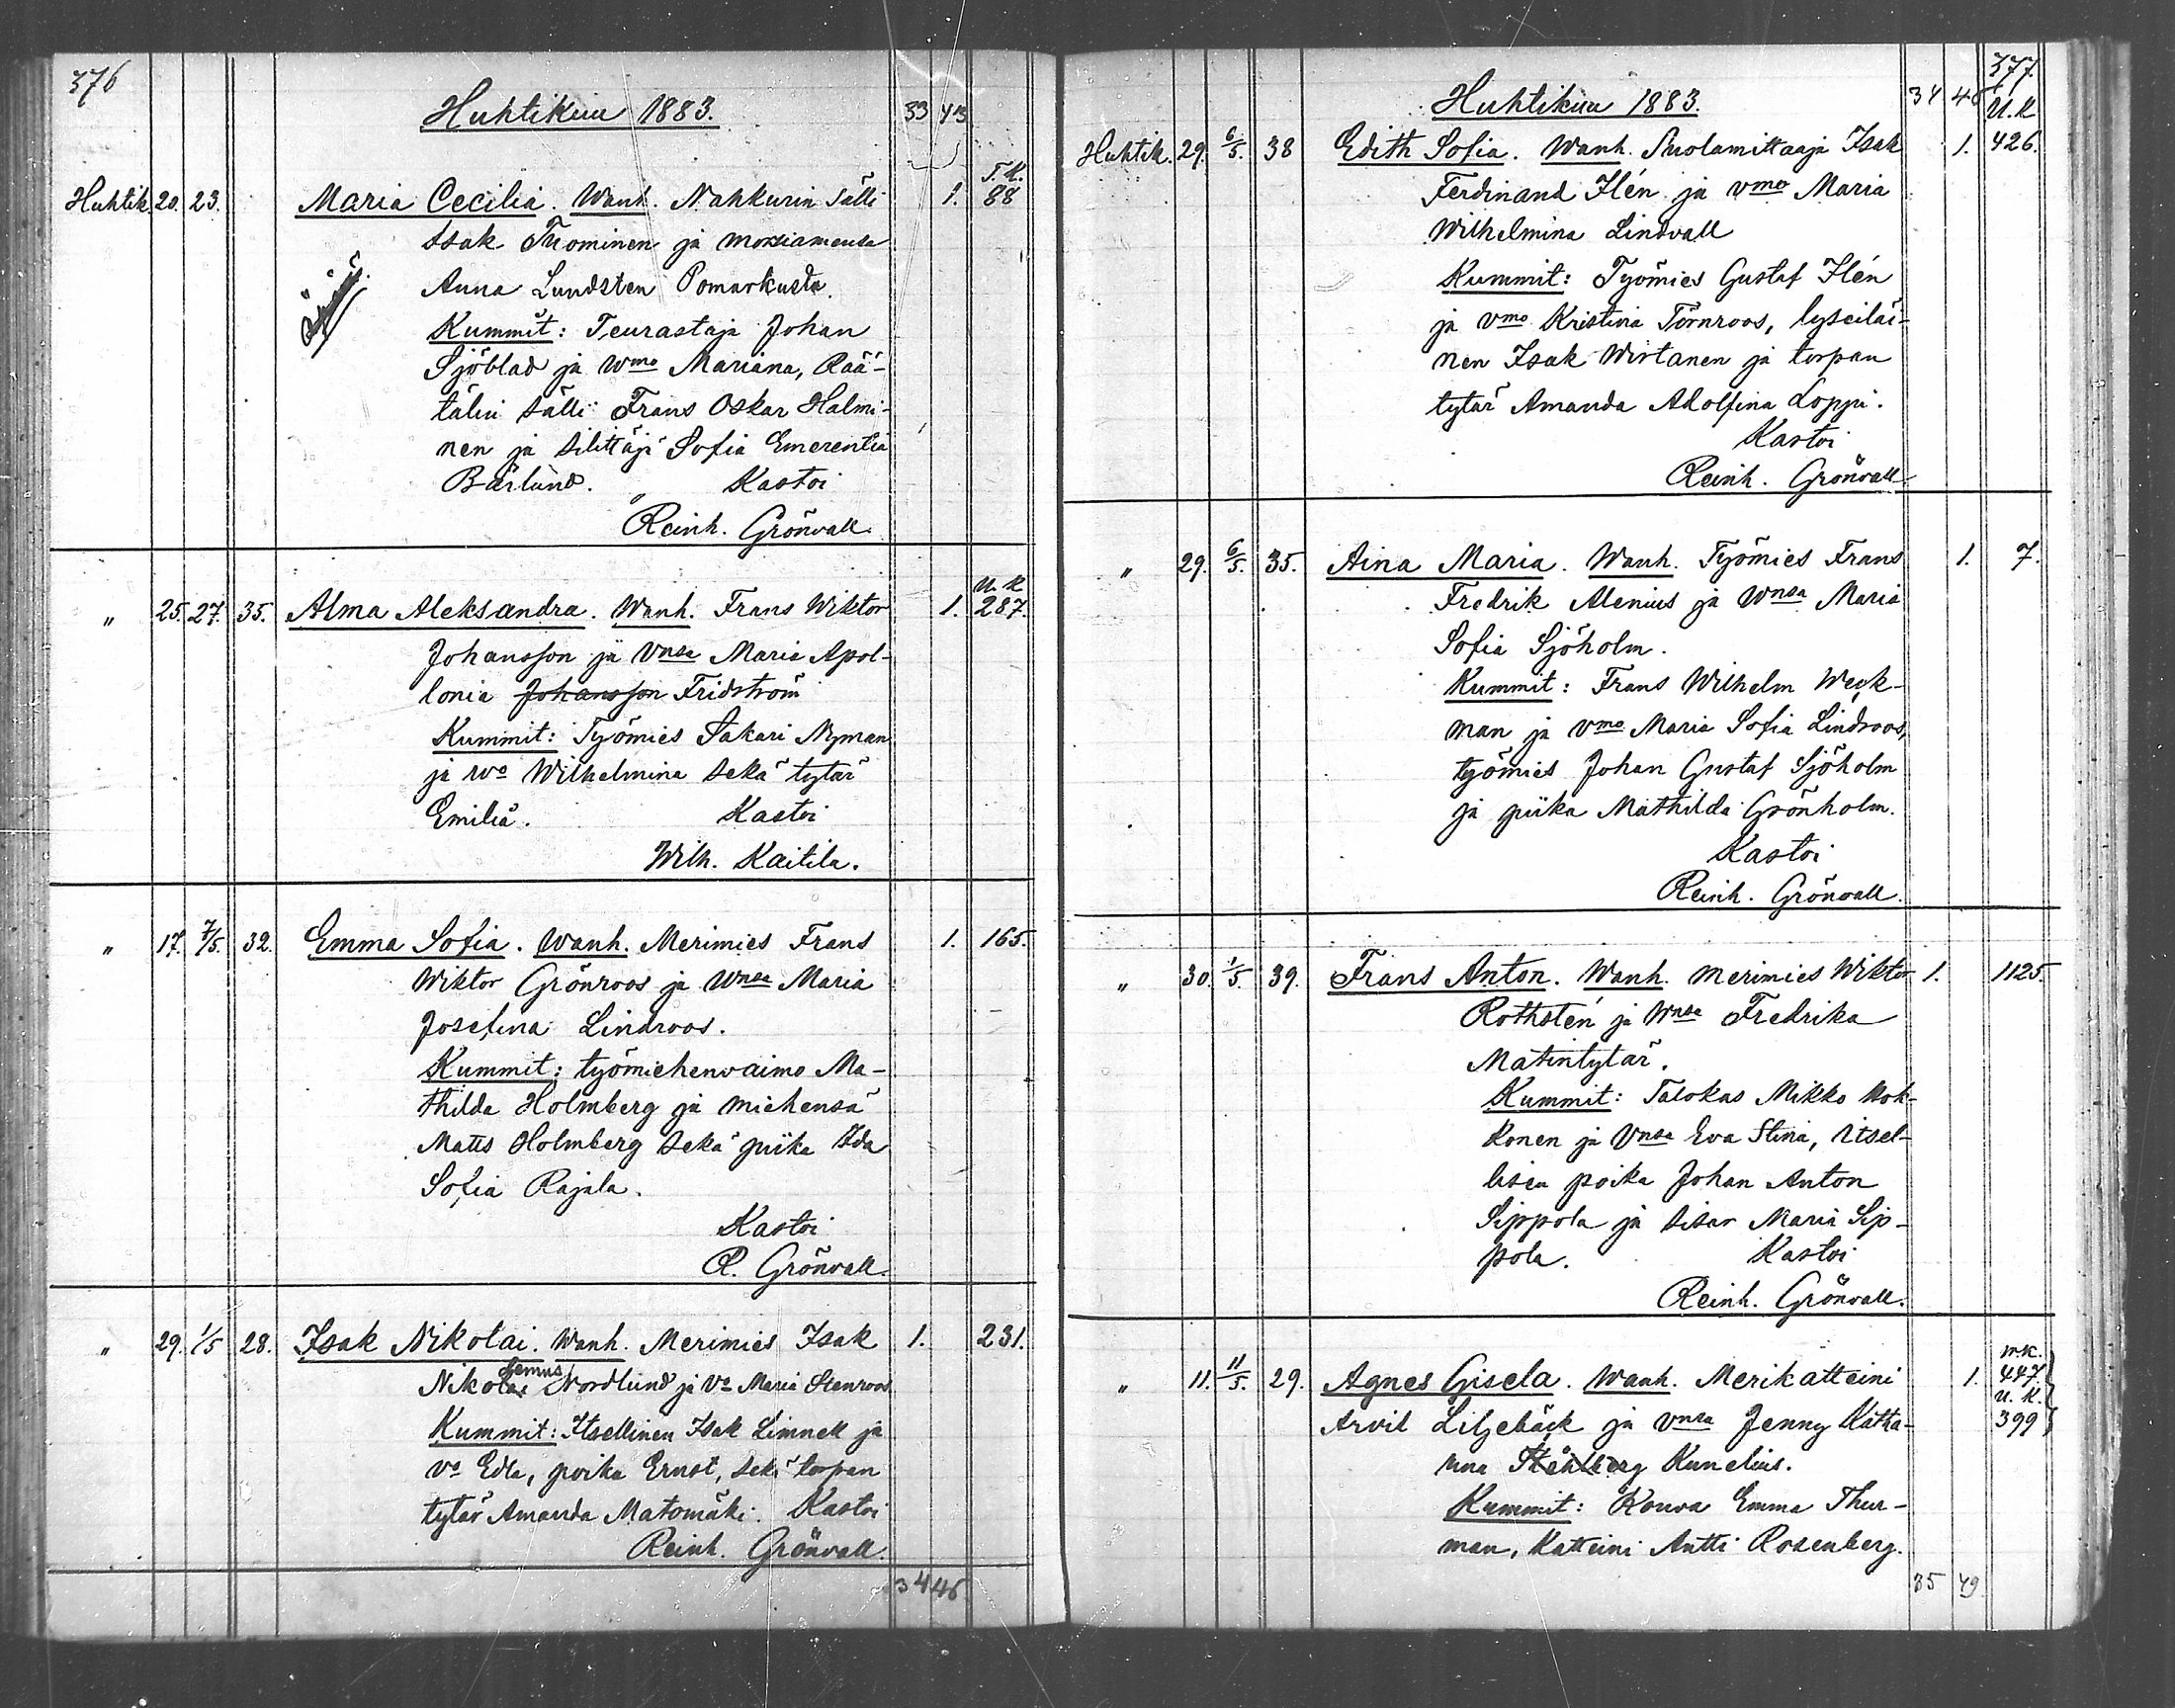 376
Huhtikuu 1883.
33 43
T.K.
Huhtik. 20. 23. Maria Cecilia. Wanh. Nahkurin sälli 1. 88
Isak Tuominen ja morsiamensa
Anna Lundsten Pomarkusta.
Kummit: Teurastaja Johan
Sjöblad ja wmo Mariana, Rää-
tälin sälli Frans Oskar Halmi-
nen ja silittäjä Sofia Emerentia
Bärlund. Kastoi
Reinh. Grönvall.
U.K
" 25. 27. 35. Alma Aleksandra. Wanh. Frans Wiktor 1. 287.
Johansson ja vnsa Maria Apol-
lonia Johansson Fridström
Kummit: Työmies Sakari Nyman
ja wo Wilhelmina sekä tytär
Emilia. Kastoi
Wilh. Kaitila.
" 17. 7/5. 32. Emma Sofia. Wanh. Merimies Frans 1. 165.
Wiktor Grönroos ja Wnsa Maria
Josefina Lindroos.
Kummit: työmiehenvaimo Ma-
thilda Holmberg ja miehensä
Matts Holmberg sekä piika Ida
Sofia Rajala.
Kastoi
R. Grönvall.
" 29. 1/5 28. Isak Nikolai. Wanh. Merimies Isak 1. 231.
Nikolai Nordlund ja Va Maria Stenroos
Kummit: Itsellinen Isak Limnell ja
Va Edla, poika Ernst, sekä torpan
tytär Amanda Matomäki. Kastoi
Reinh. Grönvall.
34 46
377.
Huhtikuu 1883.
34 46
U.K
Huhtik. 29. 6/5. 38 Edith Sofia. Wanh. Suolamittaaja Isak 1. 426.
Ferdinand Ilén ja vmo Maria
Wilhelmina Lindvall
Kummit: Työmies Gustaf Ilén
ja vmo Kristina Törnroos, lyseiläi-
nen Isak Wirtanen ja torpan
tytär Amanda Adolfina Loppi.
Kastoi
Reinh. Grönvall
" 29. 6/5. 35. Aina Maria. Wanh. Työmies Frans 1. 7.
Fredrik Alenius ja Wnsa Maria
Sofia Sjöholm.
Kummit: Frans Wilhelm Weck-
man ja vmo Maria Sofia Lindroos,
työmies Johan Gustaf Sjöholm
ja piika Mathilda Grönholm.
Kastoi
Reinh. Grönvall.
" 30. 1/5. 39. Frans Anton. Wanh. Merimies Wiktor 1. 1125.
Rothstén ja Wnsa Fredrika
Matintytär.
Kummit: Talokas Mikko Nok-
konen ja Vnsa Eva Stina, itsel-
lisen poika Johan Anton
Sippola ja sisar Maria Sip-
pola. Kastoi
Reinh. Grönvall.
m.K.
" 11. 11/5. 29. Agnes Gisela. Wanh. Merikatteini 1. 447.
U.K.
Arvil Liljebäck ja vnsa Jenny Katta- 399
rina Ståhlberg Kunelius.
Kummit: Rouva Emma Thur-
man, Katteini Antti Rosenberg.
35 49